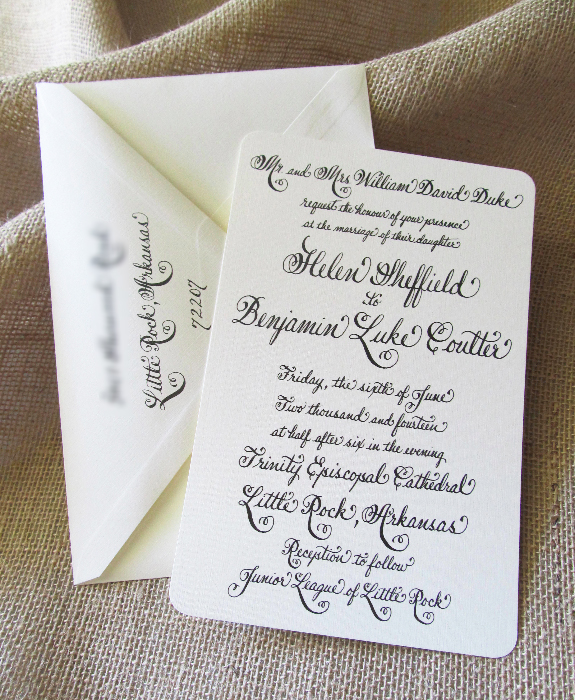 Mr and Mrs William David Duke
request the honour of your presence
at the marriage of their daughter
Helen Sheffield
to
Benjamin Luke Coulter
Friday, the sixth of June
Two thousand and fourteen
at half after six in the evening
Trinity Episcopal Cathedral
Little Rock, Arkansas
Reception to follow
Junior League of Little Rock
Little Rock, Arkansas
72207